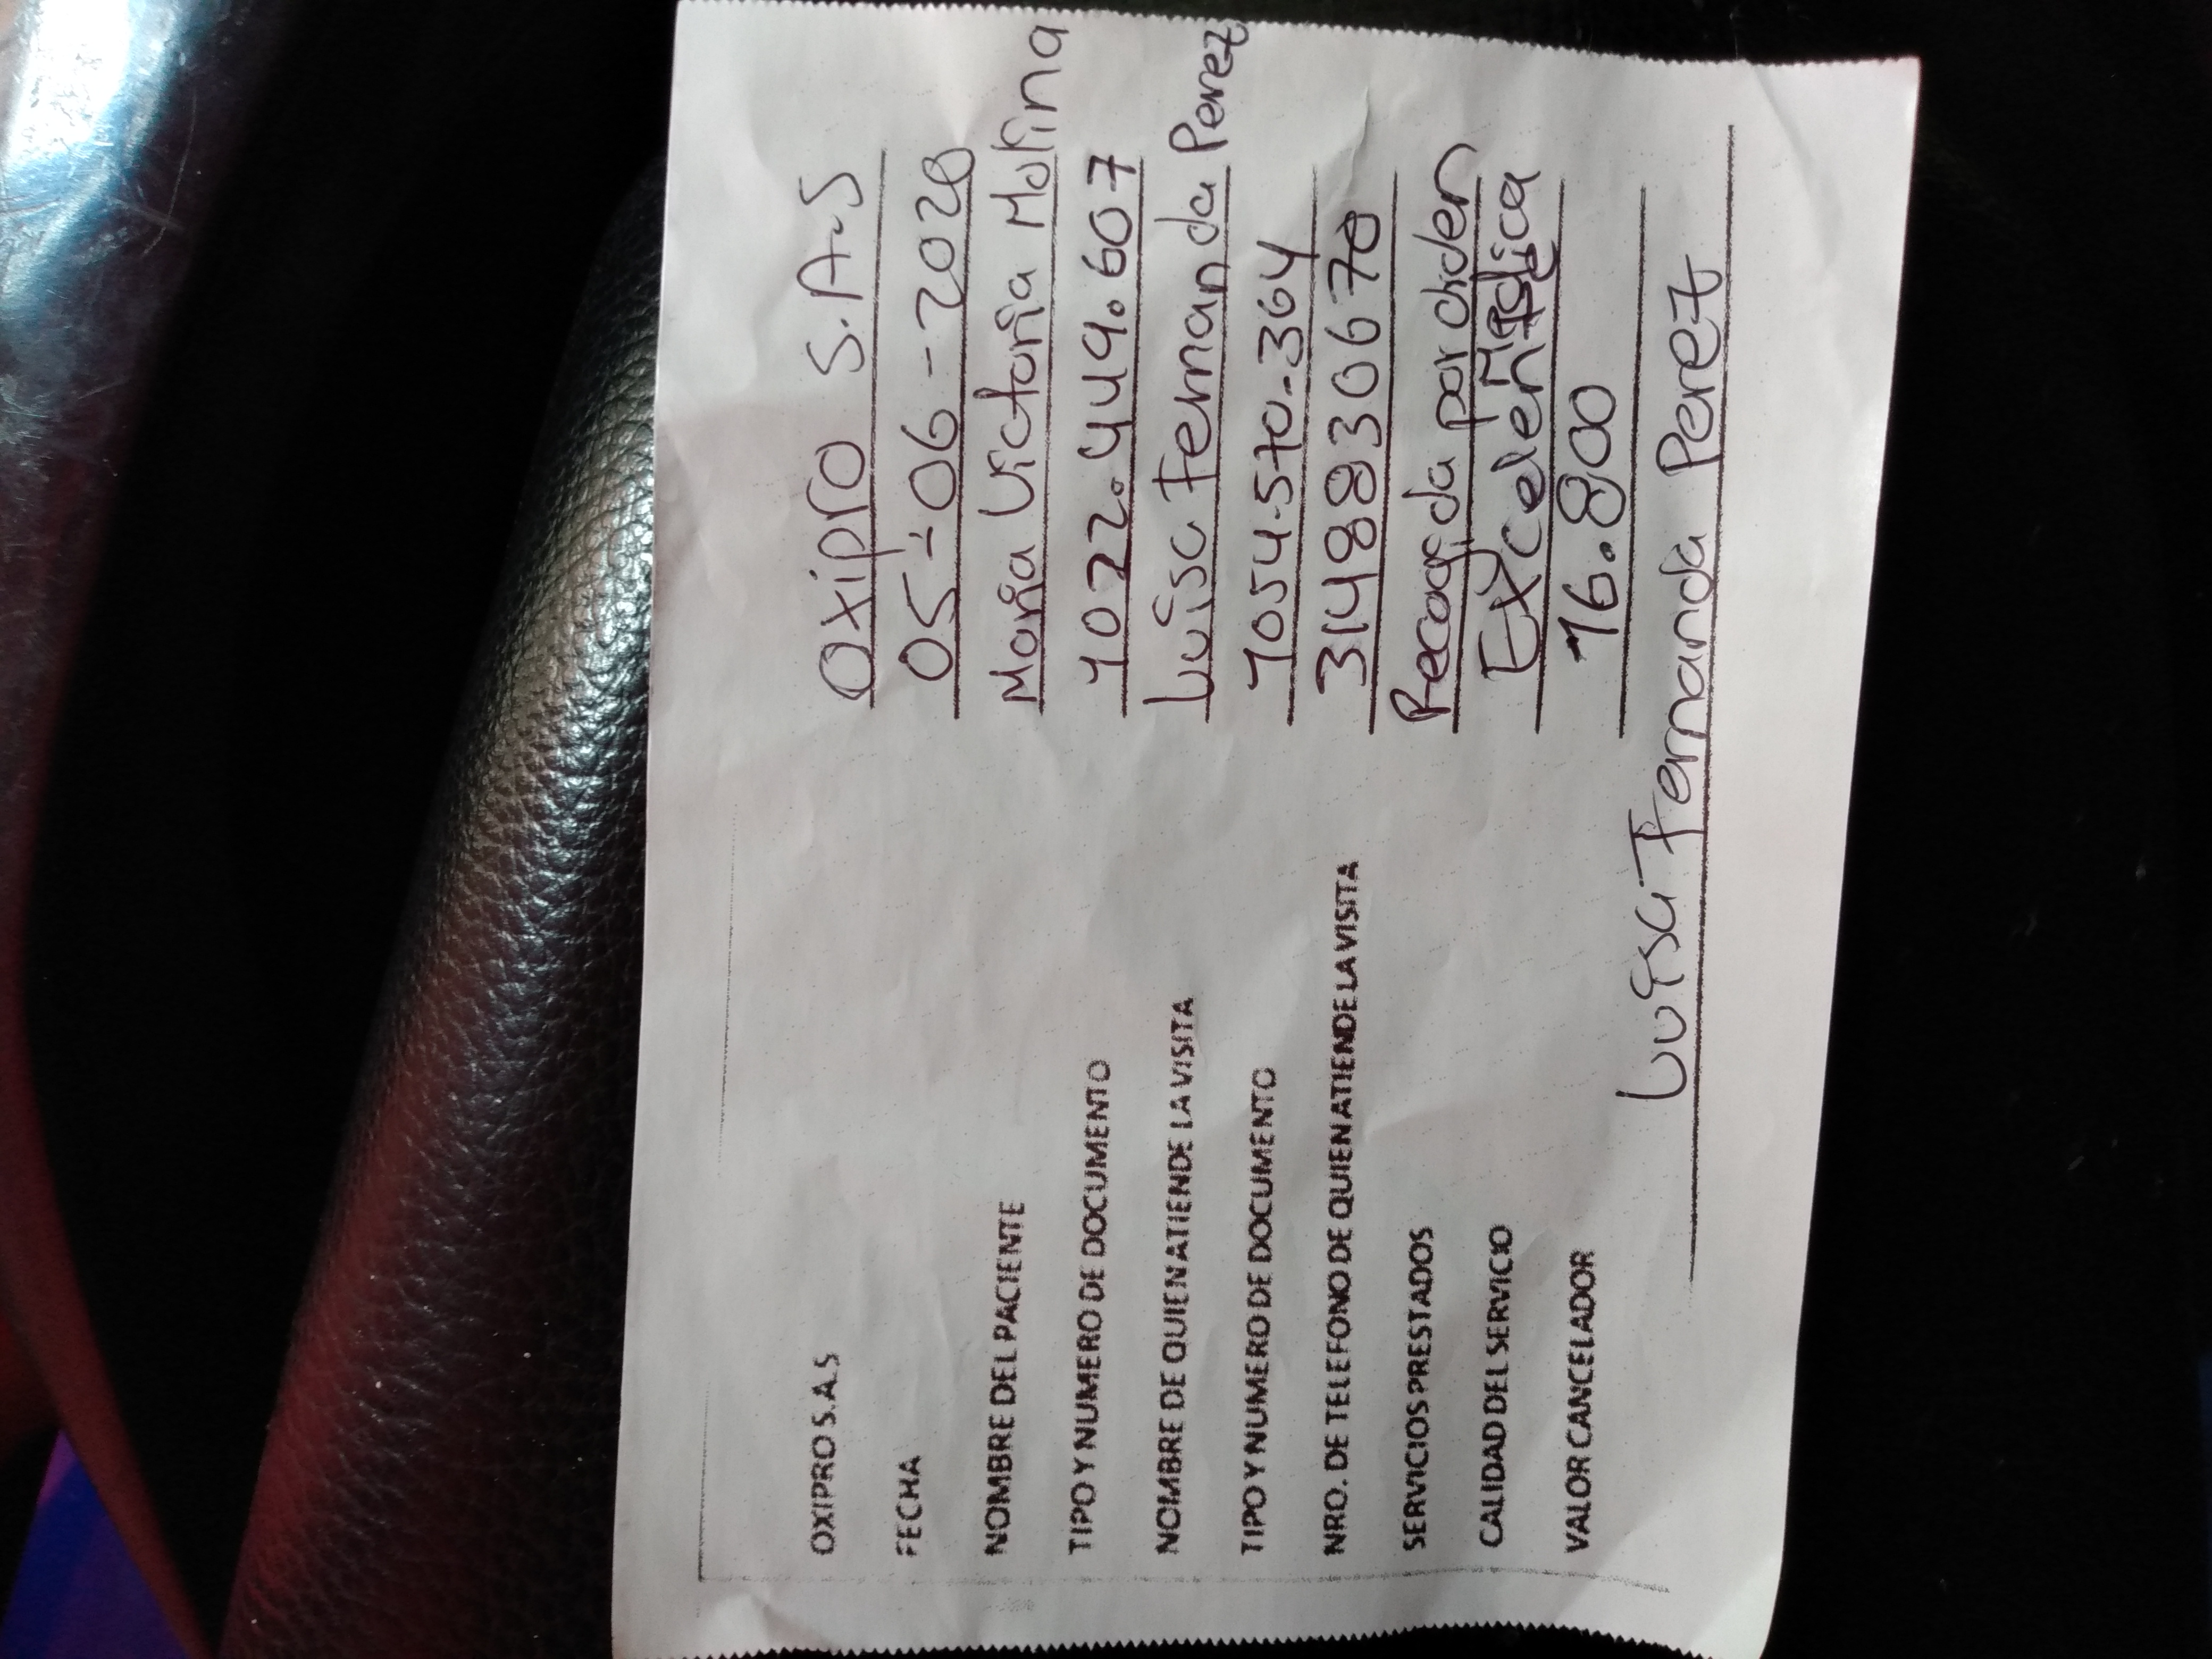 OXIPRO S.A.S Oxipro S.A.S
FECHA 05-06-2020
NOMBRE DEL PACIENTE Maria Victoria Molina
TIPO Y NUMERO DE DOCUMENTO 1022.449.607
NOMBRE DE QUIEN ATIENDE LA VISITA Luisa Fernanda Perez
TIPO Y NUMERO DE DOCUMENTO 1054.570.364
NRO. DE TELEFONO DE QUIEN ATIENDE LA VISITA 3148830670
SERVICIOS PRESTADOS Recogida por orden Medica
CALIDAD DEL SERVICIO Excelente
VALOR CANCELADOR 16.800
Luisa Fernanda Perez